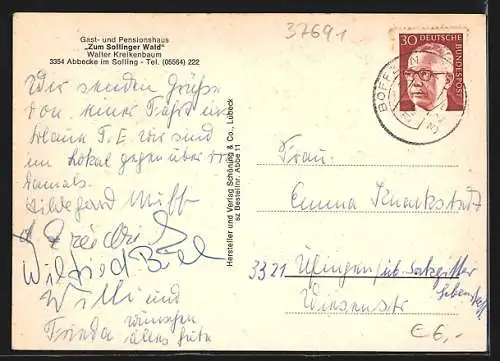 Gast- und Pensionshaus
„Zum Sollinger Wald"
Walter Kreikenbaum
3354 Abbecke im Solling - Tel. (05564) 222
37691
30 DEUTSCHE BUNDESPOST
BOFFZEN
Wir senden Grüße
von einer Fahrt in
. Wir sind
im Lokal gegenüber von
damals.
Hildegard
Wilfried
Willi und
Frieda wünschen
alles Gute
Hersteller und Verlag Schöning & Co., Lübeck
sz Bestellnr. Abbe 11
Frau
Emma Knackstedt
3321 üb. Salzgitter
Wiesenstr
€ 6,-